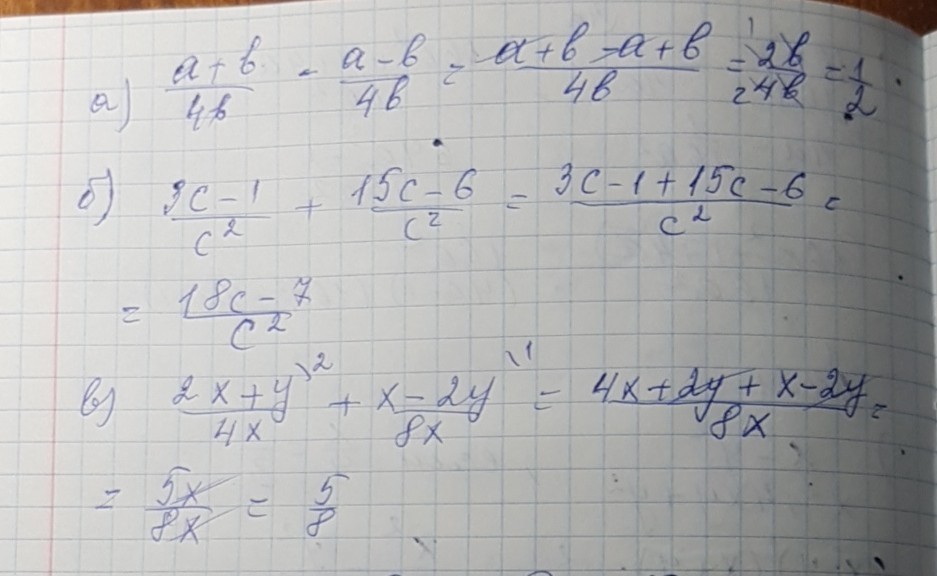 а) (a+b)/(4b) - (a-b)/(4b) = (a+b-a+b)/(4b) = (2b)/(4b) = 1/2
б) (3c-1)/(c²) + (15c-6)/(c²) = (3c-1+15c-6)/(c²) =
= (18c-7)/(c²)
в) (2x+y)\²/(4x) + (x-2y)\¹/(8x) = (4x+2y+x-2y)/(8x) =
= (5x)/(8x) = 5/8